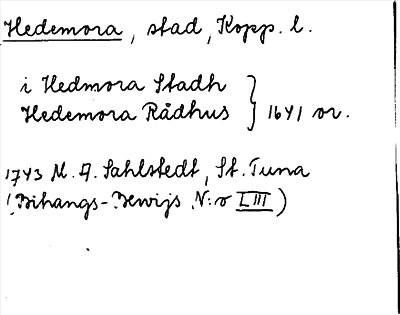 Hedemora, stad, Kopp. l.
i Hedmora Stadh
Hedemora Rådhus } 1641 or.
1743 M. A. Sahlstedt, St. Tuna
(Bihangs-Bewijs N:o LIII)